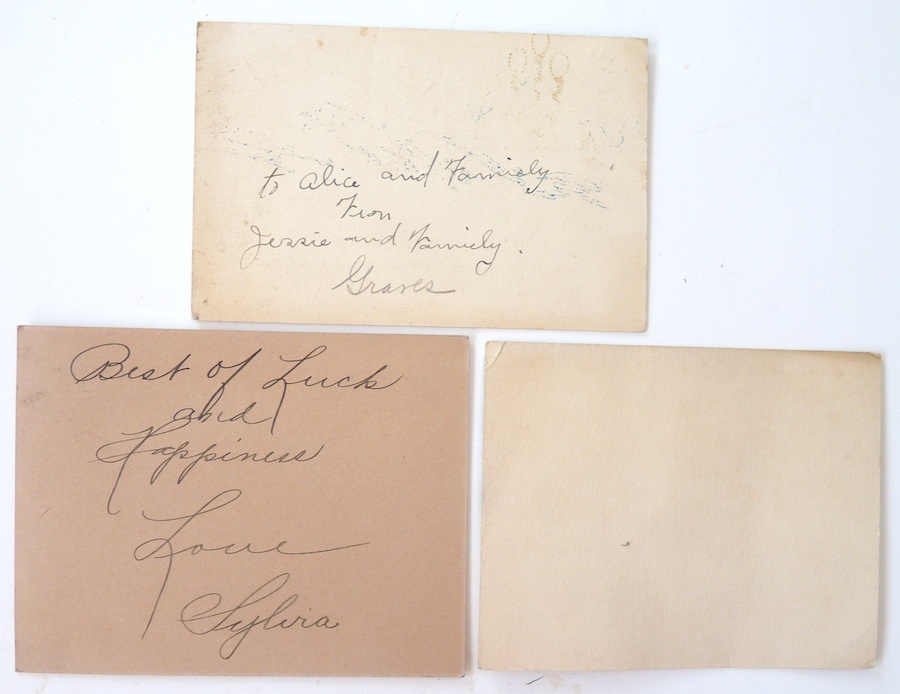 to Alice and Famiely
From
Jessie and Famiely.
Graves
Best of Luck
and
Happiness
Love
Sylvia